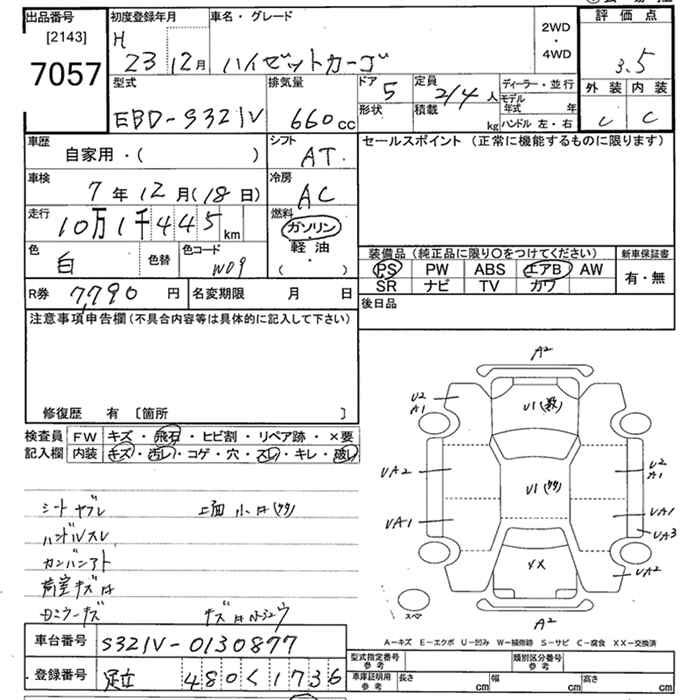 出品番号 初度登録年月 車名・グレード 評価点
[2143] H 2WD
7057 23 12月 ハイゼットカーゴ ・ 3.5
4WD
型式 排気量 ドア 5 定員 2/4人 ディーラー・並行 外装 内装
EBD-S321V 660cc 形状 積載 kg モデル年式 年 C C
ハンドル 左・右
車歴 シフト セールスポイント (正常に機能するものに限ります)
自家用・( ) AT
車検 冷房
7年12月(18日) AC
走行 燃料
10万1千445km ガソリン
軽油
色 白 色替 色コード W09 ( ・ )
装備品 (純正品に限り○をつけてください) 新車保証書
PS PW ABS エアB AW 有・無
SR ナビ TV カワ
R券 7,790円 名変期限 月 日 後日品
注意事項申告欄(不具合内容等は具体的に記入して下さい)
修復歴 有 〔箇所 〕
検査員 FW キズ・飛石・ヒビ割・リペア跡・×要
記入欄 内装 キズ・汚レ・コゲ・穴・スレ・キレ・破レ
シートヤブレ 上面小凹(多)
ハンドルスレ
カンバンアト
荷室キズ凹
A2
U2
A1
U1(数)
UA2
U2
A1
U1(多)
UA1
UA1
UA3
XX
UA2
スペア
A2
A-キズ E-エクボ U-凹み W-補修跡 S-サビ C-腐食 XX-交換済
車台番号 S321V-0130877
登録番号 足立 480く1736
型式指定番号 参考 類別区分番号 参考
車庫証明用 参考 長さ cm 幅 cm 高さ cm